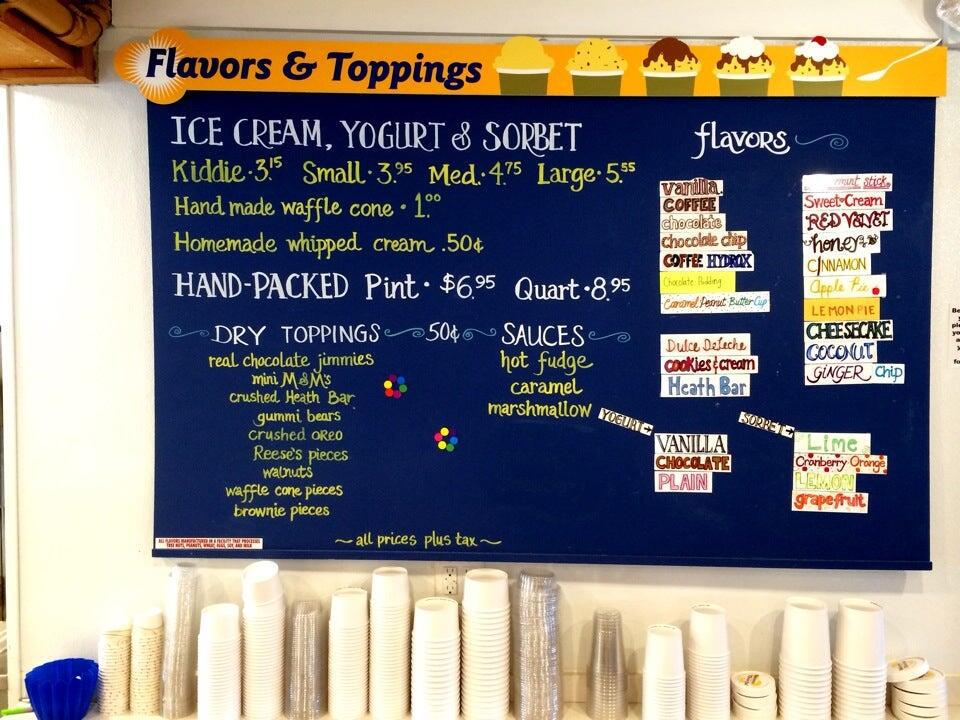 Flavors & Toppings
ICE CREAM, YOGURT & SORBET
Kiddie·3.15 Small·3.95 Med.·4.75 Large·5.55
Hand made waffle cone · 1.00
Homemade whipped cream .50¢
HAND-PACKED Pint · $6.95 Quart·8.95
DRY TOPPINGS 50¢
real chocolate jimmies
mini M&M's
crushed Heath Bar
gummi bears
crushed OREO
Reese's pieces
walnuts
waffle cone pieces
brownie pieces
SAUCES
hot fudge
caramel
marshmallow
~ all prices plus tax ~
ALL FLAVORS MANUFACTURED IN A FACILITY THAT PROCESSES
TREE NUTS, PEANUTS, WHEAT, EGGS, SOY, AND MILK
flavors
vanilla
COFFEE
chocolate
chocolate chip
COFFEE HYDROX
Chocolate Pudding
Caramel Peanut Butter Cup
Dulce DeLeche
cookies & cream
Heath Bar
stick
Sweet-Cream
RED VELVET
honey
CINNAMON
Apple Pie
LEMON PIE
CHEESECAKE
COCONUT
GINGER Chip
YOGURT→
VANILLA
CHOCOLATE
PLAIN
SORBET→
Lime
Cranberry Orange
LEMON
grapefruit